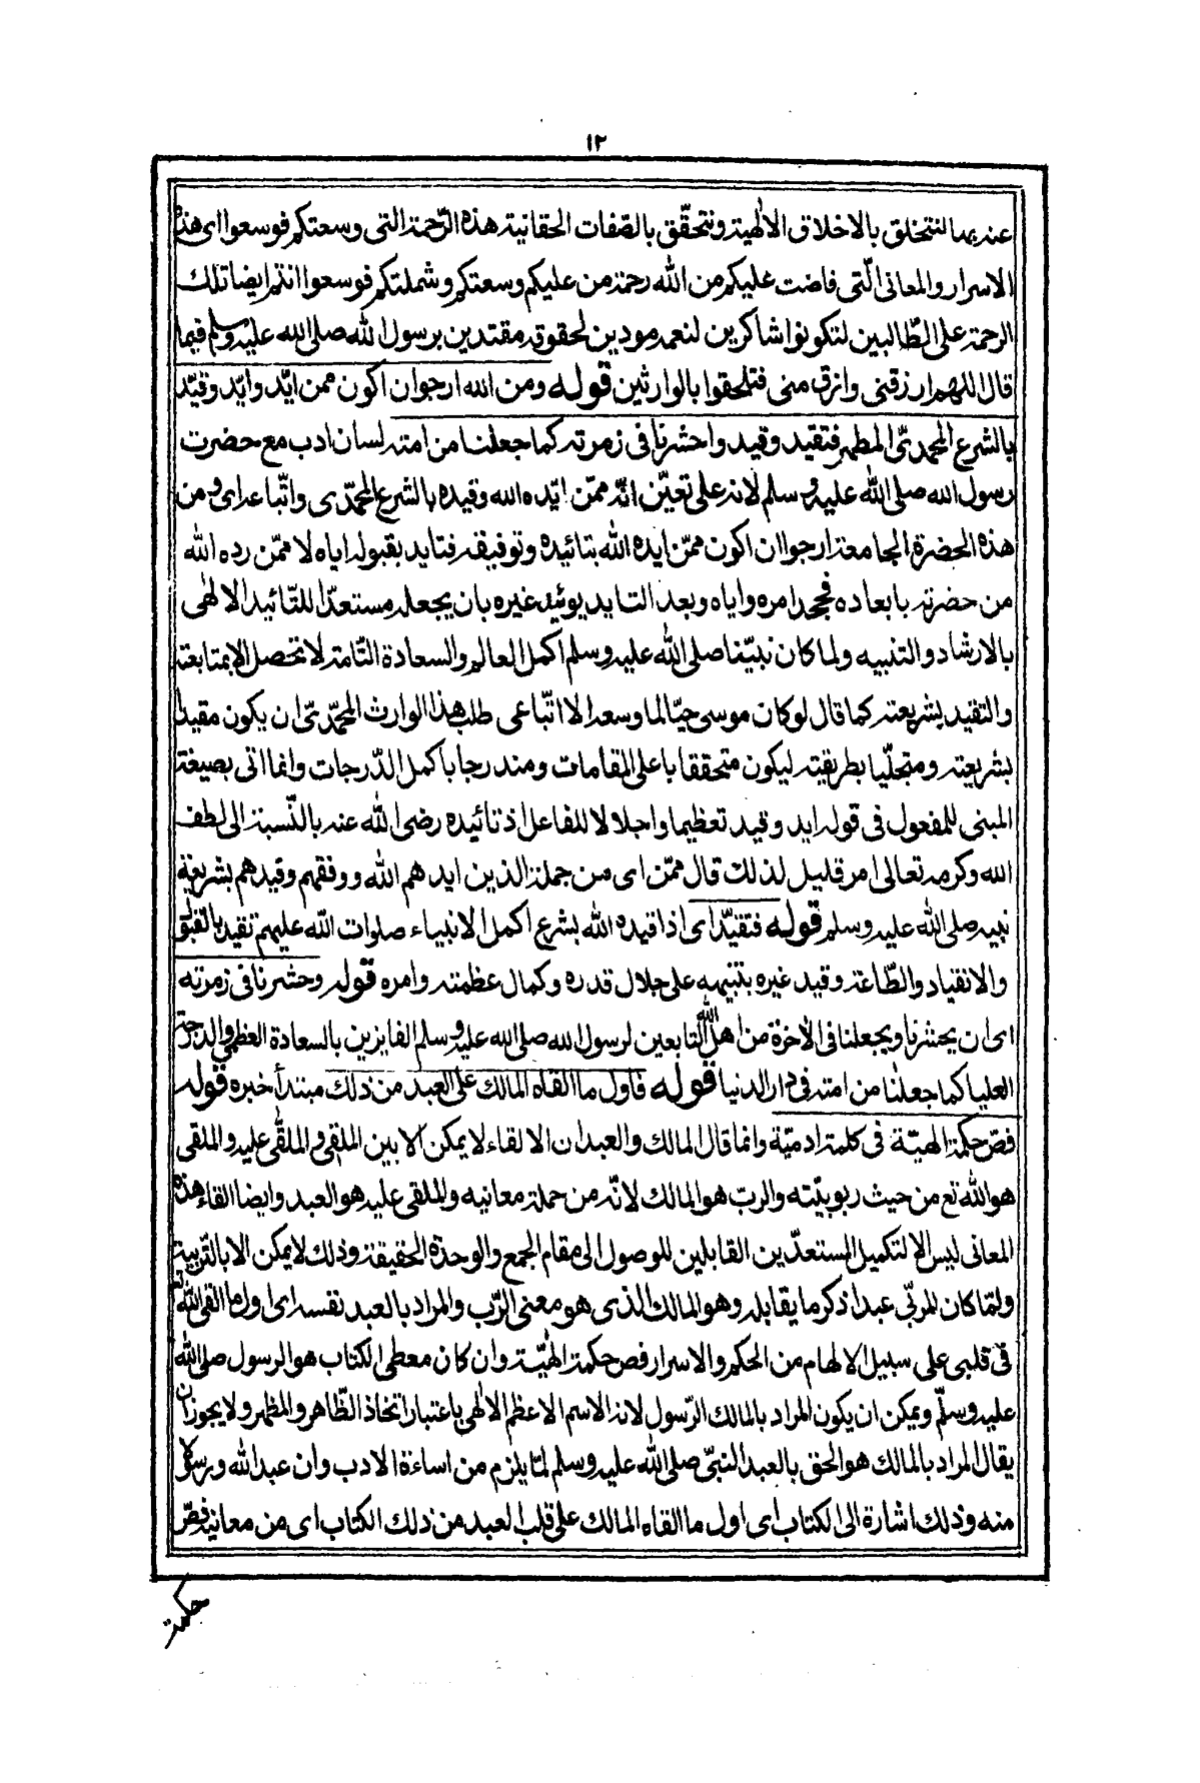 ١٢
عنه بها لنتخلق بالاخلاق الالٰهية ونتحقّق بالصّفات الحقانية هذه الرّحمة التى وسعتكم فوسعوا اى هذه
الاسرار والمعانى الّتى فاضت عليكم من الله رحمة من عليكم وسعتكم وشملتكم فوسعوا انتم ايضا تلك
الرحمة على الطّالبين لتكونوا شاكرين لنعمه مودين لحقوقه مقتدين برسول الله صلى الله عليه وسلم فيما
قال اللهم ارزقنى وارزق منى فتلحقوا بالوارثين قوله ومن الله ارجوان اكون ممن ايّد وايّد وقيّد
بالشرع المحمدىّ المطهر فتقيد وقيد واحشرنا فى زمرته كما جعلنا من امته لسان ادب مع حضرت
رسول الله صلى الله عليه وسلم لانه على تعيّن انّه ممّن ايّده الله وقيده بالشرع المحمّدى واتّباعه اى ومن
هذه الحضرة الجامعة ارجوا ان اكون ممّن ايده الله بتائيده وتوفيقه فتايد بقبوله اياه لا ممّن رده الله
من حضرته بابعاده فجحد امره واياه وبعد التايد يوئيد غيره بان يجعله مستعدّا للتّائيد الالٰهى
بالارشاد والتنبيه ولما كان نبيّنا صلى الله عليه وسلم اكمل العالم والسعادة التّامة لا تحصل الا بمتابعته
والتقيد بشريعته كما قال لو كان موسى حيّا لما وسعه الا اتّباعى طلب هذا الوارث المحمّدىّ ان يكون مقيدا
بشريعته ومتجلّيا بطريقته ليكون متحققا باعلى المقامات ومندرجا باكمل الدّرجات وانما اتى بصيغة
المبنى للمفعول فى قوله ايد وقيد تعظيما واجلالا للفاعل اذ تائيده رضى الله عنه بالنّسبة الى لطف
الله وكرمه تعالى امر قليل لذلك قال ممّن اى من جملة الذين ايدهم الله ووفقهم وقيدهم بشريعة
نبيه صلى الله عليه وسلم قوله فتقيّد اى اذا قيده الله بشرع اكمل الانبياء صلوات الله عليهم تقيد بالقبول
والانقياد والطّاعة وقيد غيره بتنبيهه على جلال قدره وكمال عظمته وامره قوله وحشرنا فى زمرته
اى ان يحشرنا ويجعلنا فى الاخرة من اهل الله التابعين لرسول الله صلى الله عليه وسلم الفايزين بالسعادة العظمى والدرجة
العليا كما جعلنا من امته فى دار الدنيا قوله فاول ما القاه المالك على العبد من ذلك مبتدأ خبره قوله
فص حكمة الهيّة فى كلمة ادميّة وانما قال المالك والعبد لان الالقاء لا يمكن الا بين الملقى والملقٰى عليه والملقى
هو الله تع من حيث ربوبيّته والرب هو المالك لانّه من جملة معانيه والملقى عليه هو العبد وايضا القاء هذه
المعانى ليس الا لتكميل المستعدّين القابلين للوصول الى مقام الجمع والوحدة الحقيقة وذلك لا يمكن الا بالتّربية
ولمّا كان المربّى عبدا ذكر ما يقابله وهو المالك الذى هو معنى الرّب والمراد بالعبد نفسه اى اول ما القى الله تع
فى قلبى على سبيل الالهام من الحكم والاسرار فص حكمة الٰهيّة وان كان معطى الكتاب هو الرسول صلى الله
عليه وسلّم ويمكن ان يكون المراد بالمالك الرّسول لانه الاسم الاعظم الالٰهى باعتبار اتخاذ الظّاهر والمظهر ولا يجوز ان
يقال المراد بالمالك هو الحق بالعبد النبىّ صلى الله عليه وسلم لمّا يلزم من اساءة الادب وان عبد الله ورسوله
منه وذلك اشارة الى الكتاب اى اول ما القاه المالك على قلب العبد من ذلك الكتاب اى من معانيه فصّ
حكمة